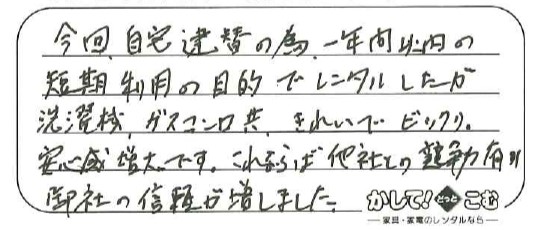 今回、自宅建替の為、一年間以内の
短期利用の目的でレンタルしたが
洗濯機、ガスコンロ共、きれいでビックリ。
安心感増大です。これならば他社との競争力有り
御社の信頼が増しました。
かして!どっとこむ
家具・家電のレンタルなら